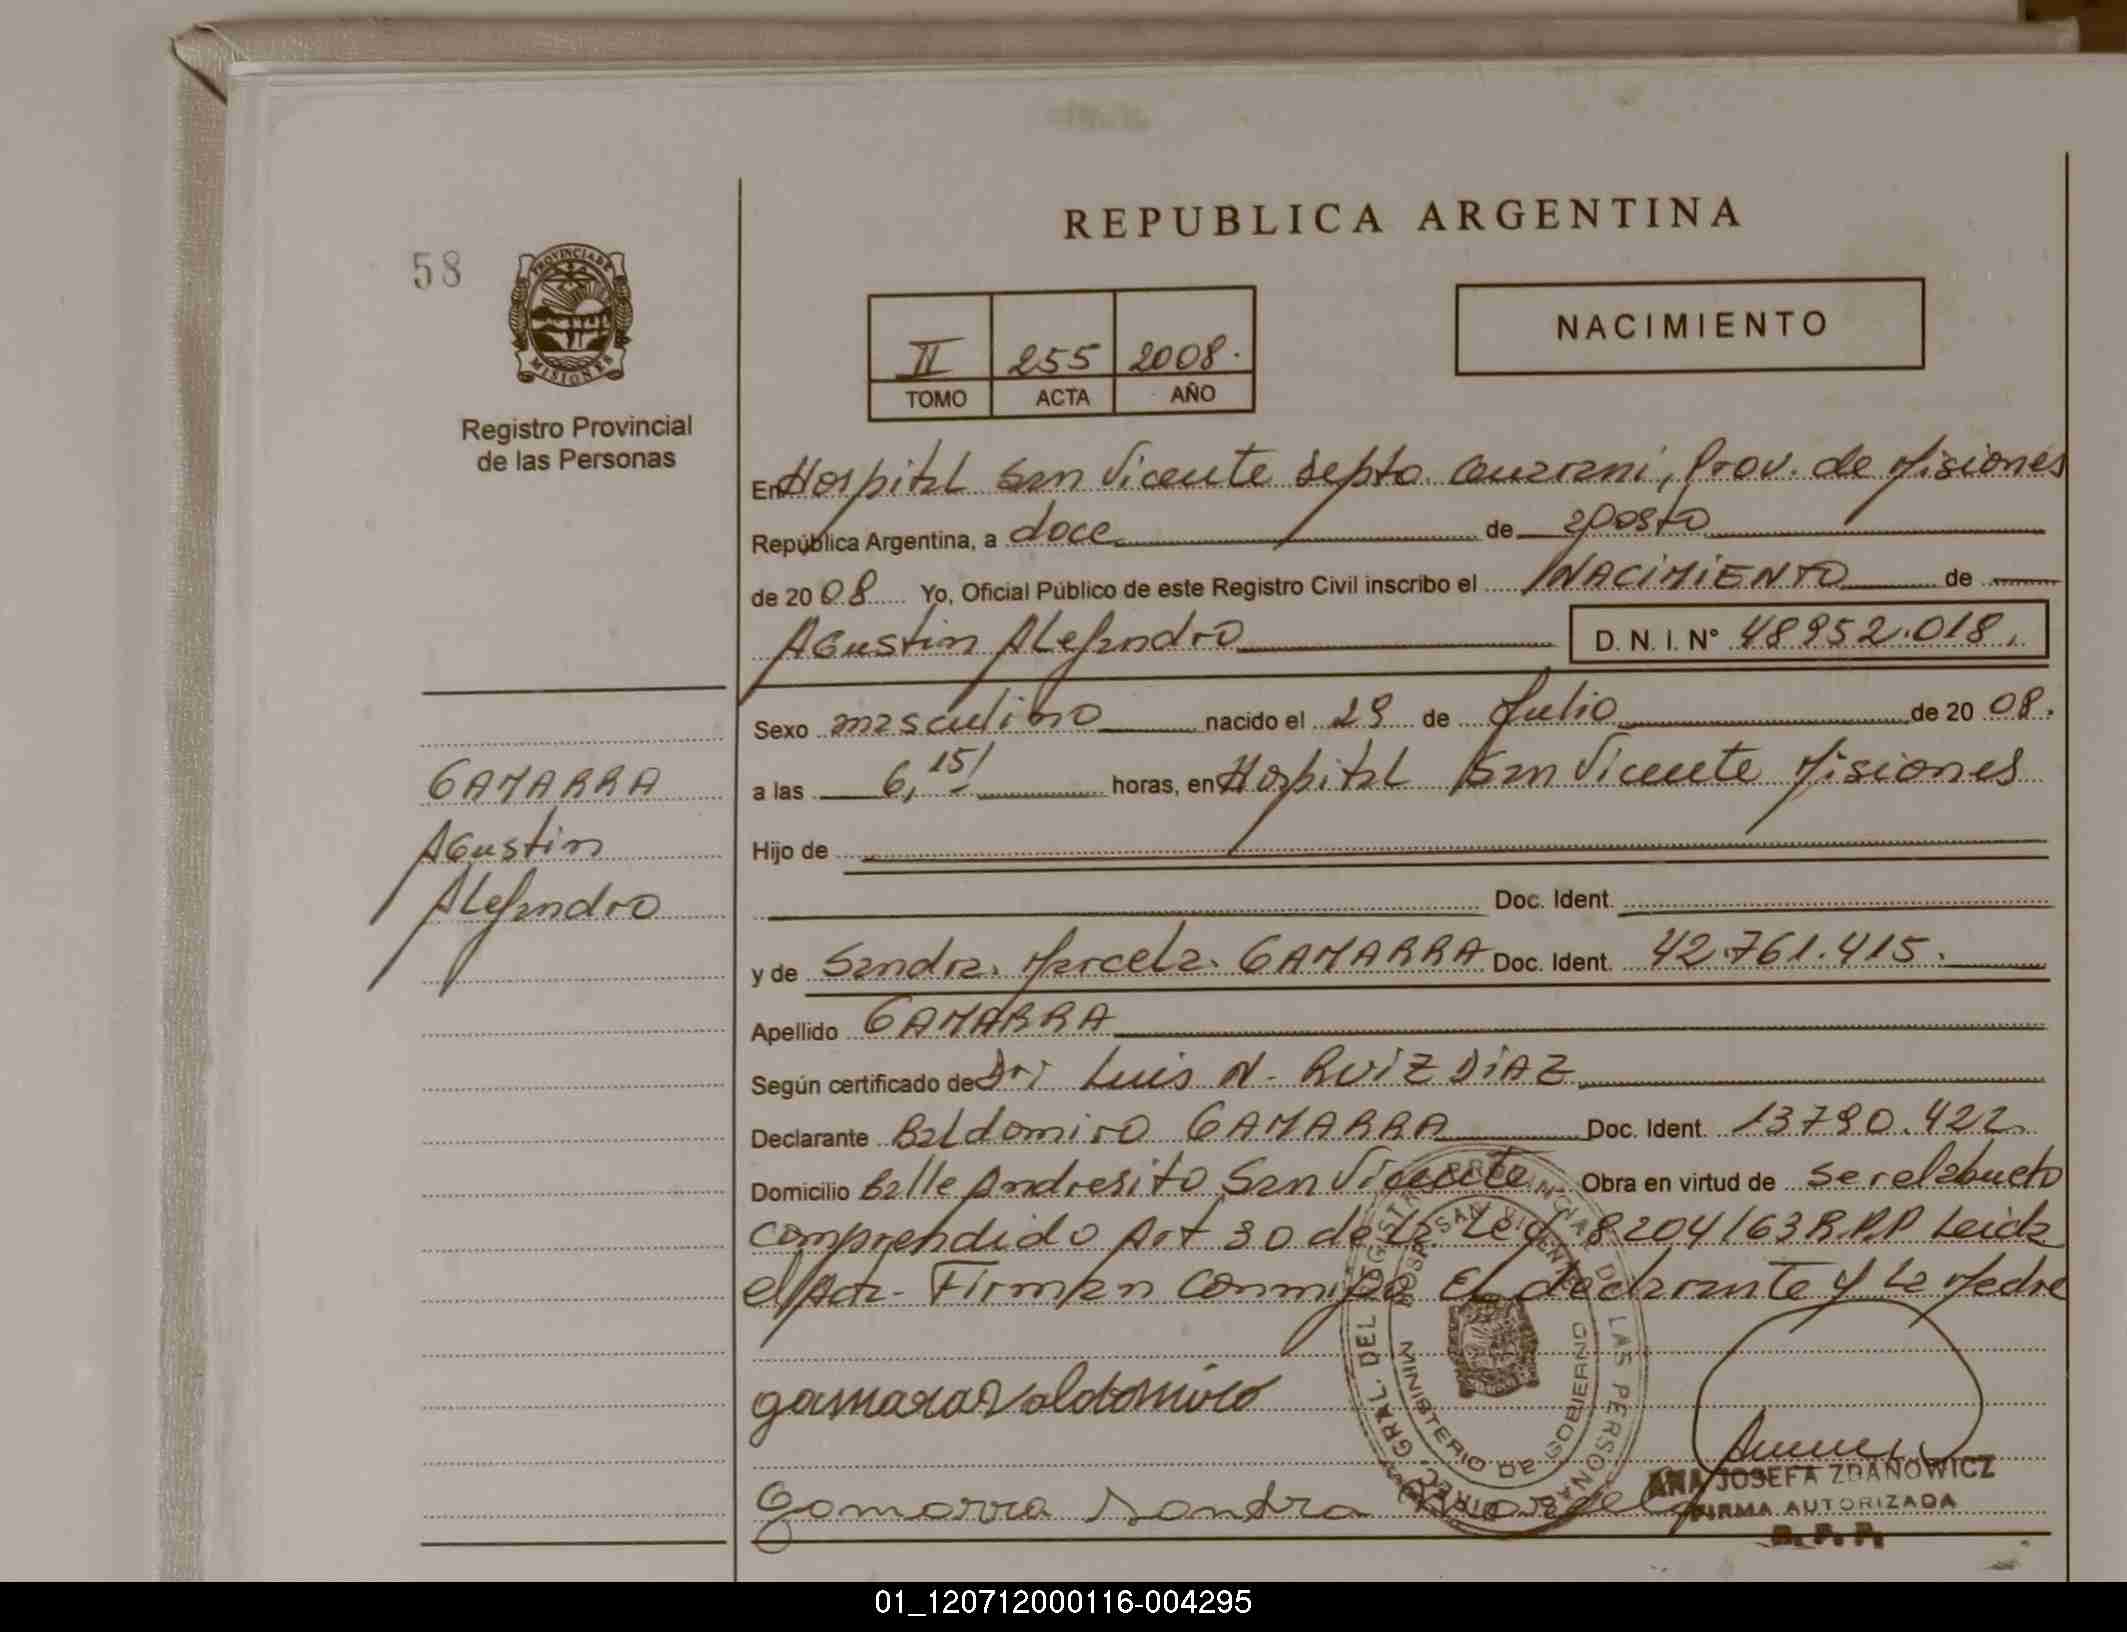 REPUBLICA ARGENTINA
58
PROVINCIA DE
MISIONES
Registro Provincial
de las Personas
II 255 2008.
TOMO ACTA AÑO
NACIMIENTO
En Hospital San Vicente Depto. Guarani, Prov. de Misiones
República Argentina, a doce de agosto
de 2008 Yo, Oficial Público de este Registro Civil inscribo el NACIMIENTO de
Agustin Alejandro D. N. I. N° 48952.018.
Sexo masculino nacido el 29 de Julio de 2008.
a las 6,15 horas, en Hospital San Vicente Misiones
Hijo de
Doc. Ident.
y de Sandra Marcela GAMARRA Doc. Ident. 42.761.415.
Apellido GAMARRA
Según certificado de Dr: Luis N. RUIZ DIAZ
Declarante Baldomiro GAMARRA Doc. Ident. 13790.422.
Domicilio Calle Andresito San Vicente Obra en virtud de ser el abuelo
comprendido Art 30 de la Ley 8204/63 R.P.P Leida
el Acta- Firman Conmigo El declarante y la Madre
GAMARRA
Agustin
Alejandro
gamara Valdomiro
Gamarra Sandra Marcela
DIREC. GRAL. DEL REGISTRO PROVINCIAL DE LAS PERSONAS
HOSP. SAN VICENTE
MINISTERIO DE GOBIERNO
ANA JOSEFA ZDANOWICZ
FIRMA AUTORIZADA
R. P. P.
01_120712000116-004295